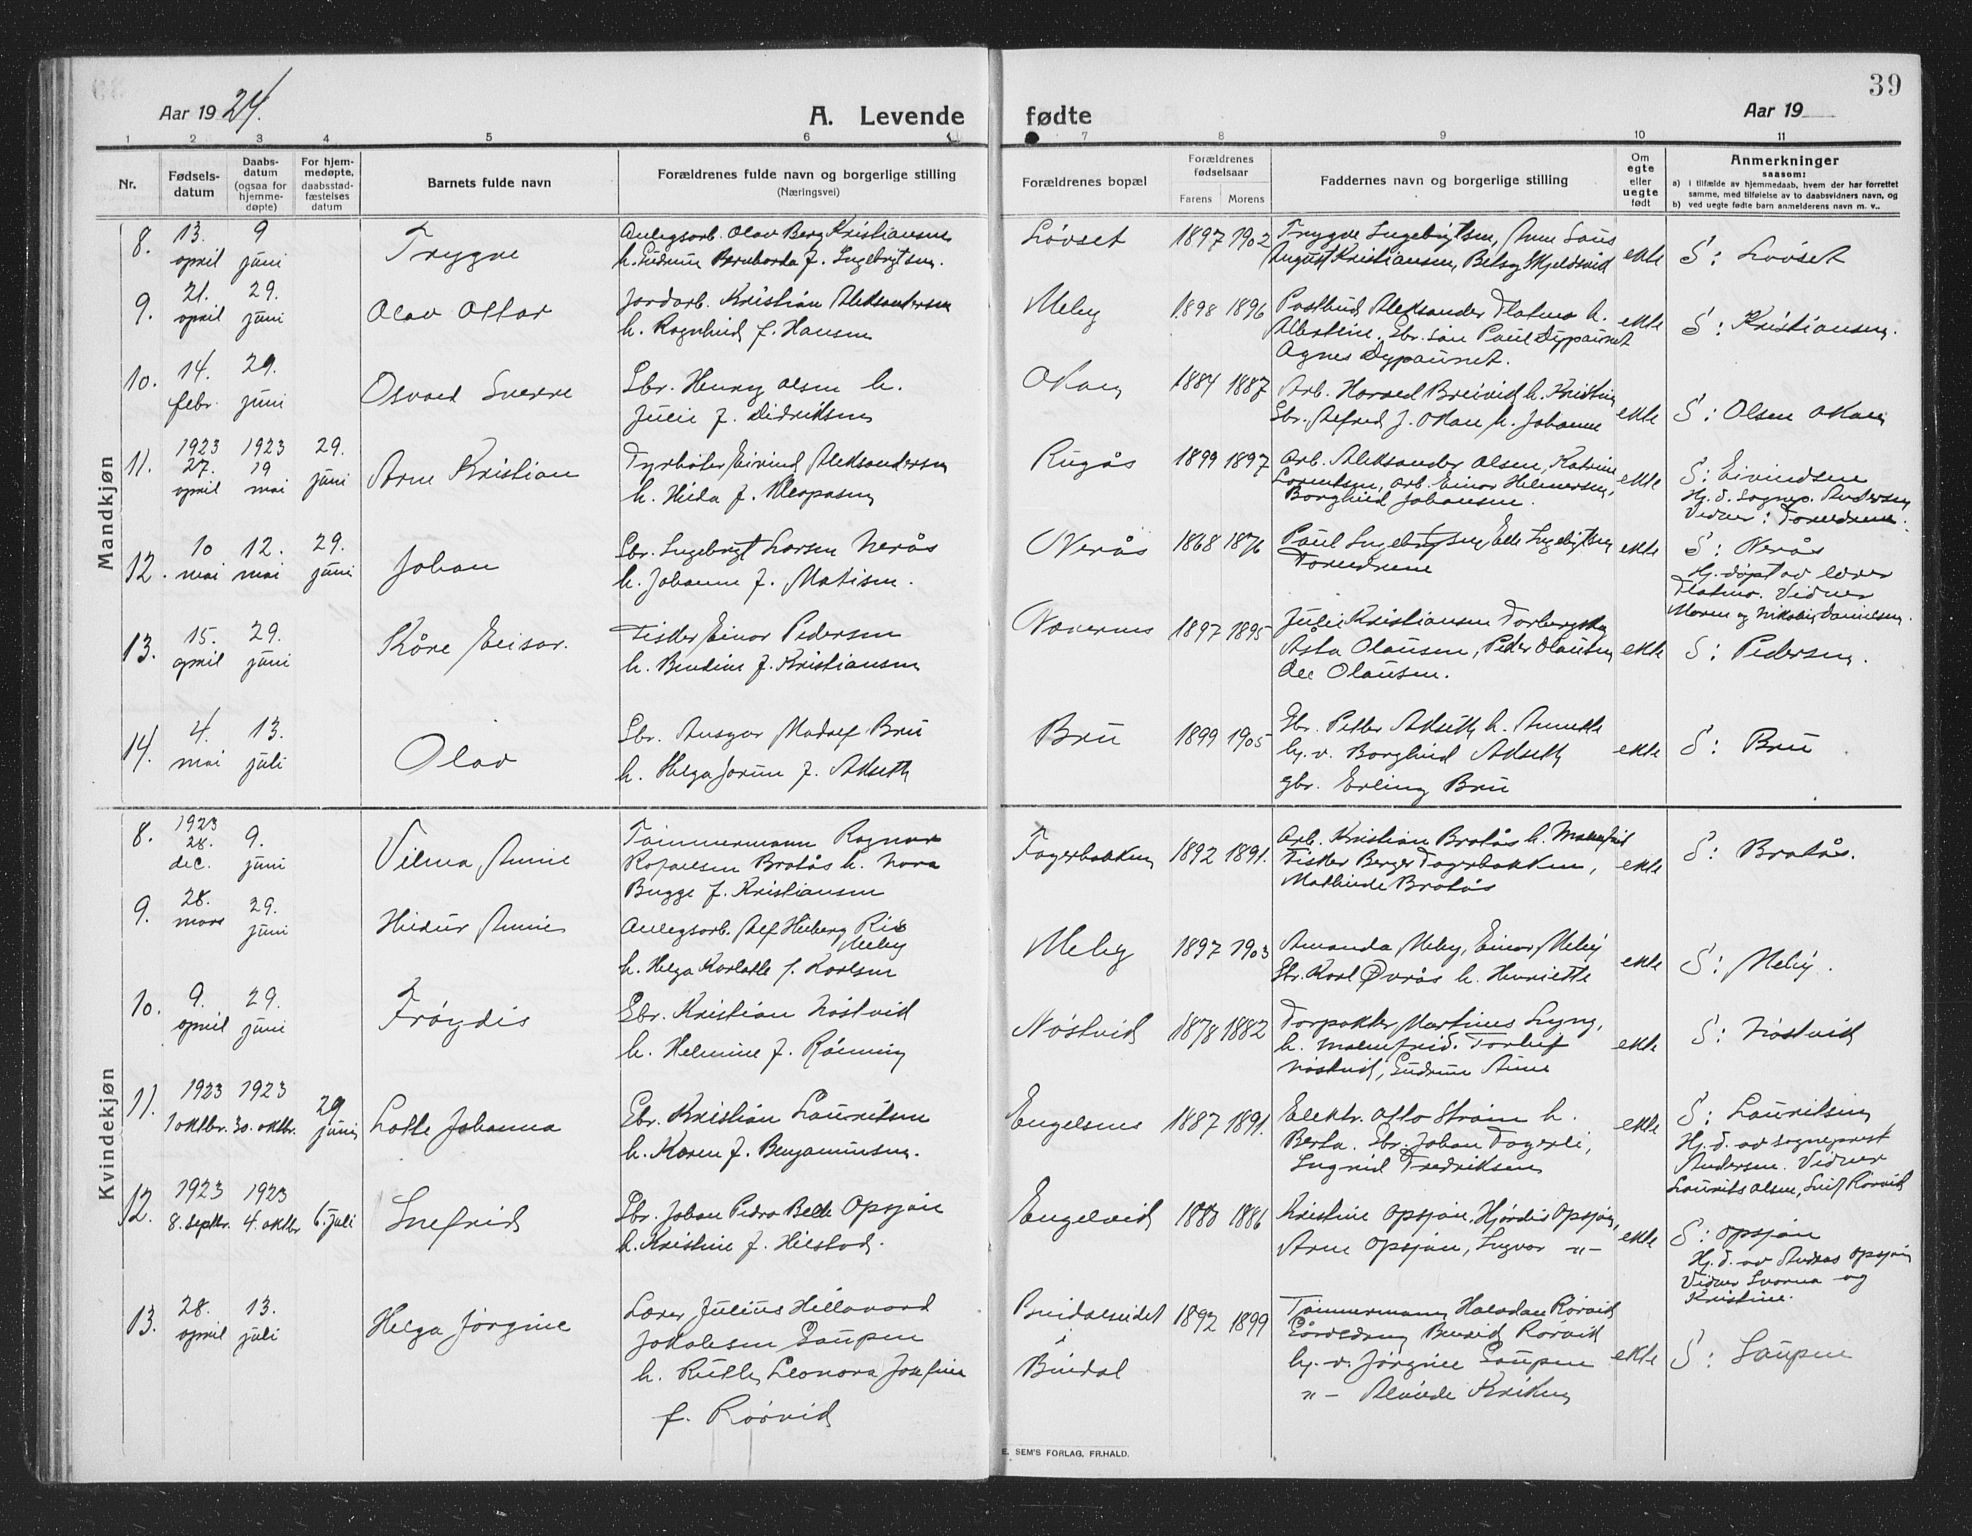 39
Aar 1924.
A. Levende fødte
Aar 19
1 2 3 4 5 6 7 8 9 10 11
Nr.
Fødsels-
datum
Daabs-
datum
(ogsaa for
hjemme-
døpte)
For hjem-
medøpte,
daabsstad-
fæstelses
datum
Barnets fulde navn
Forældrenes fulde navn og borgerlige stilling
(Næringsvei)
Forældrenes bopæl
Forældrenes
fødselsaar
Farens Morens
Faddernes navn og borgerlige stilling
Om
egte
eller
uegte
født
Anmerkninger
saasom:
a) i tilfælde av hjemmedaab, hvem der har forrettet
samme, med tilføielse av to daabsvidners navn, og
b) ved uegte fødte barn anmelderens navn m. v..
Mandkjøn
8. 13. april 9 juni
Trygve
Anlegsarb. Olav Berg Kristiansen
h. Gudrun Bernharda f. Ingebrigtsen.
Løvset 1897 1902
Trygve Ingebrigtsen, Arne Saus
August Kristiansen, Betsy Skjeldsvid
ekte
S: Løvset
9. 21. april 29. juni
Olav Ottar
Jordarb. Kristian Aleksandersen
h. Ragnhild f. Hansen
Meby 1898 1896
Postbud Aleksander Flatmo h.
Albertine, Gbr. søn Paul Dypaunet
Agnes Dypaunet.
ekte
S: Kristiansen.
10. 14. febr. 29. juni
Osvald Sverre
Gbr. Henry Olsen h.
Julie f. Didriksen
Okan 1884 1887
Arb. Harald Breivid h. Kristine
Gbr. Alfred J. Okan h. Johanne
ekte
S: Olsen Okan
11. 1923 27. april 1923 19 mai 29. juni
Arne Kristian
Fyrbøter Eivind Aleksandersen
h. Hilda f. Kleopasen
Rugås 1899 1897
Arb. Aleksander Olsen, Katrine
Lorentsen, Arb. Einar Helmersen,
Borghild Johansen.
ekte
S: Eivindsen
Hj. d. Sognep. Andersen
Vidner: Foreldrene.
12. 10 mai 12. mai 29. juni
Johan
Gbr. Ingebrigt Larsen Nerås
h. Johanna f. Matisen.
Nerås 1868 1876
Paul Ingebrigtsen, Elle Ingebrigtsen
Foreldrene
ekte
S: Nerås
Hj. døpt av lærer
Flatmo. Vidner
Maren og Nikolai Danielsen.
13. 15. april 29. juni
Kåre Elisar.
Fisker Einar Pedersen
h. Bendine f. Kristiansen
Navernes 1897 1895
Julie Kristiansen Torbergska
Asta Olausen, Peder Olausen
Ole Olausen.
ekte
S: Pedersen.
14. 4. mai 13. juli
Olav
Gbr. Ansgar Madolf Bru
h. Helga Jorun f. Akseth
Bru 1899 1905
Gbr. Petter Akseth h. Annette
hg. v. Borghild Akseth
gbr. Erling Bru
ekte
S: Bru
Kvindekjøn
8. 1923 28. dec. 9. juni
Vilma Annie
Tømmermann Ragnar
Rafaelsen Bratås h. Nora
Bugge f. Kristiansen
Fagerbakken 1892 1891.
Arb. Kristian Bratås h. Malmfrid
Fisker Berger Fagerbakken,
Mathilde Bratås
ekte
S: Bratås.
9. 28. mars 29. juni
Hildur Annie
Anlegsarb. Alf Hilberg Riis
Meby
h. Helga Karlotte f. Karlsen
Meby 1897 1903
Amanda Meby, Einar Meby
Gbr. Karl Øvrås h. Henriette
ekte
S: Meby.
10. 9. april 29. juni
Frøydis
Gbr. Kristian Nøstvid
h. Helmine f. Rønning
Nøstvid 1878 1882
Forpakter Martinus Lyng,
h. Malmfrid. Torleif
Nøstvid, Gudrun Aune
ekte
S: Nøstvid
11. 1923 1 oktbr. 1923 30. oktbr. 29. juni
Lotte Johanna
Gbr. Kristian Lauritsen
h. Karen f. Benjaminsen.
Engelsnes 1887 1891.
Elektr. Otto Strøm h.
Berta. Gbr. Johan Fagerli,
Ingrid Fredriksen
ekte
S: Lauritsen
Hj. d. av sogneprest
Andersen. Vidner
Laurits Olsen, Leif Rørvid
12. 1923 8. septbr. 1923 4. oktbr 6. juli
Snefrid
Gbr. Johan Pedro Belle Opsjøn
h. Kristine f. Hilstad.
Engelvid 1880 1886
Kristine Opsjøn, Hjørdis Opsjøn,
Arne Opsjøn, Ingvar -"-
ekte
S: Opsjøn
Hj. d. av Andreas Opsjøn
Vidner Lovrna og
Kristine.
13. 28. april 13. juli
Helga Jørgine
Lærer Julius Hillavard
Jakobsen Saupen
h. Ruth Leonora Josefine
f. Rørvid
Bindalseidet
i
Bindal
1892 1899
Tømmermann Halvdan Rørvid
Gårddreng Bernid Rørvid
hg. v. Jørgine Saupen
-"- Alvilde Kriken
ekte
S: Saupen
E. SEM'S FORLAG. FR.HALD.